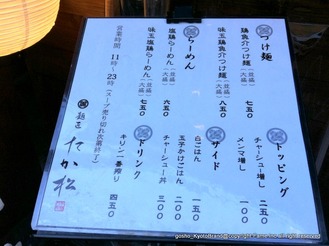 つけ麺
鶏魚介つけ麺（並盛）（大盛）七五〇
味玉鶏魚介つけ麺（並盛）（大盛）八五〇
らーめん
塩鶏らーめん（並盛）（大盛）六五〇
味玉塩鶏らーめん（並盛）（大盛）七五〇
営業時間 11時～23時（スープ売り切れ次第終了）
麺匠 たか松
トッピング
チャーシュー増し 二五〇
メンマ増し 一〇〇
サイド
白ごはん
玉子かけごはん 二〇〇
チャーシュー丼 三〇〇
ドリンク
キリン一番搾り 四五〇